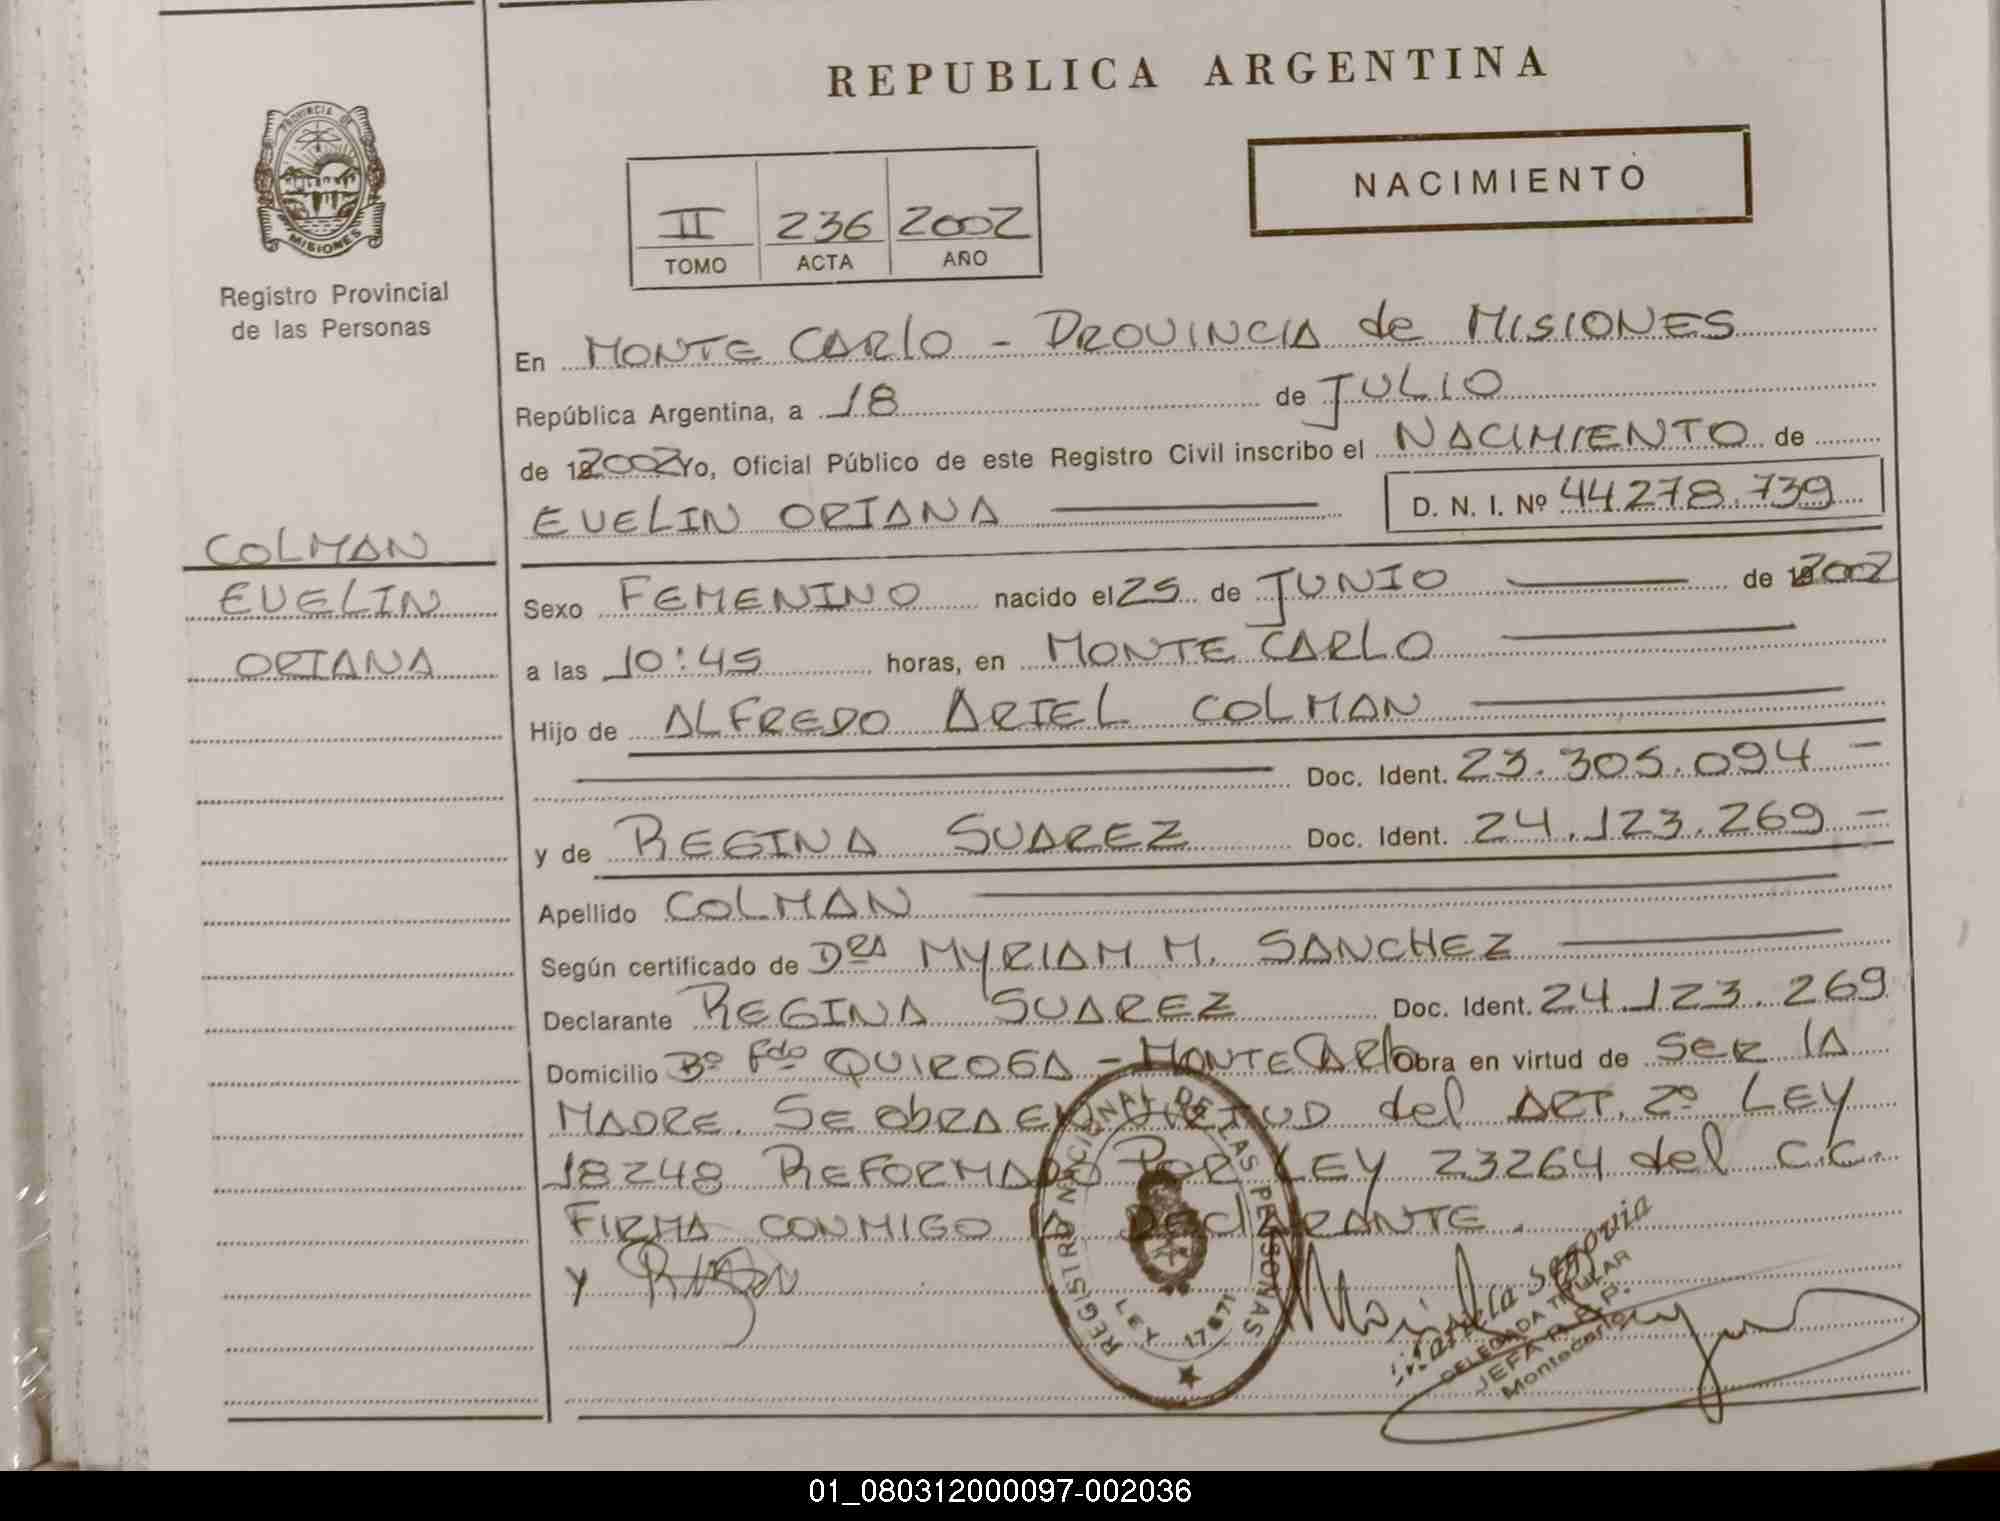 REPUBLICA ARGENTINA
PROVINCIA DE
MISIONES
Registro Provincial
de las Personas
NACIMIENTO
II 236 2002
TOMO ACTA AÑO
En MONTE CARLO - PROVINCIA de MISIONES
República Argentina, a 18 de JULIO
de 2002 Yo, Oficial Público de este Registro Civil inscribo el NACIMIENTO de
EVELIN ORIANA D. N. I. Nº 44278.739
COLMAN
EVELIN
ORIANA
Sexo FEMENINO nacido el 25 de JUNIO de 2002
a las 10:45 horas, en MONTE CARLO
Hijo de ALFREDO ARIEL COLMAN
Doc. Ident. 23.305.094 -
y de REGINA SUAREZ Doc. Ident. 24.123.269 -
Apellido COLMAN
Según certificado de DRA MYRIAM M. SANCHEZ
Declarante REGINA SUAREZ Doc. Ident. 24.123.269
Domicilio Bº Fdo QUIROGA - MONTE CARLO Obra en virtud de SER LA
MADRE. SE ObRA EN VIRTUD del ART. 2º LEY
18248 REFORMADO POR LEY 23264 del C.C.
FIRMA CONMIGO LA DECLARANTE.
y
REGISTRO NACIONAL DE LAS PERSONAS
LEY 17671
Mariela Segovia
DELEGADA TITULAR
JEFA R.P.P.
Montecarlo
01_080312000097-002036